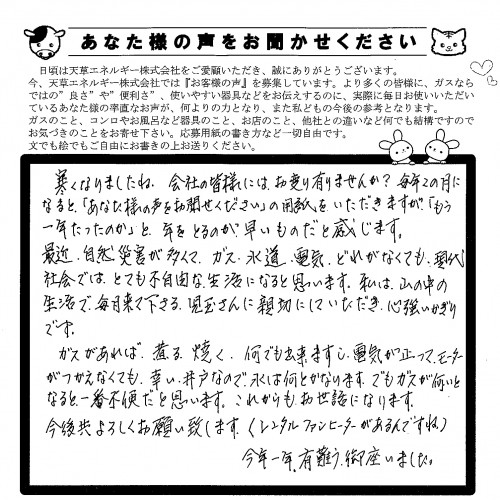 あなた様の声をお聞かせください
日頃は天草エネルギー株式会社をご愛顧いただき、誠にありがとうございます。
今、天草エネルギー株式会社では『お客様の声』を募集しています。より多くの皆様に、ガスなら
ではの”良さ”や”便利さ”、使いやすい器具などをお伝えするのに、実際に毎日お使いいただいて
いるあなた様の率直なお声が、何よりの力となり、また私どもの今後の参考となります。
ガスのこと、コンロやお風呂など器具のこと、お店のこと、他社との違いなど何でも結構ですので
お気づきのことをお寄せ下さい。応募用紙の書き方など一切自由です。
文でも絵でもご自由にお書きの上お送りください。
寒くなりましたね。会社の皆様にはお変り有りませんか?毎年この月に
なると、「あなた様の声をお聞せください」の用紙をいただきますが「もう
一年たったのか」と、年をとるのが早いものだと感じます。
最近、自然災害が多くて、ガス、水道、電気、どれがなくても、現代
社会では、とても不自由な生活になると思います。私は、山の中の
生活で、毎月来て下さる、児玉さんに親切にしていただき、心強いかぎり
です。
ガスがあれば、煮る、焼く、何でも出来ますし、電気が止って、モーター
がつかえなくても、幸い、井戸なので、水は何とかなります。でもガスが無いと
なると一番不便だと思います。これからもお世話になります。
今後共よろしくお願い致します。(レンタルファンヒーターがあるんですね。)
今年一年、有難う御座いました。